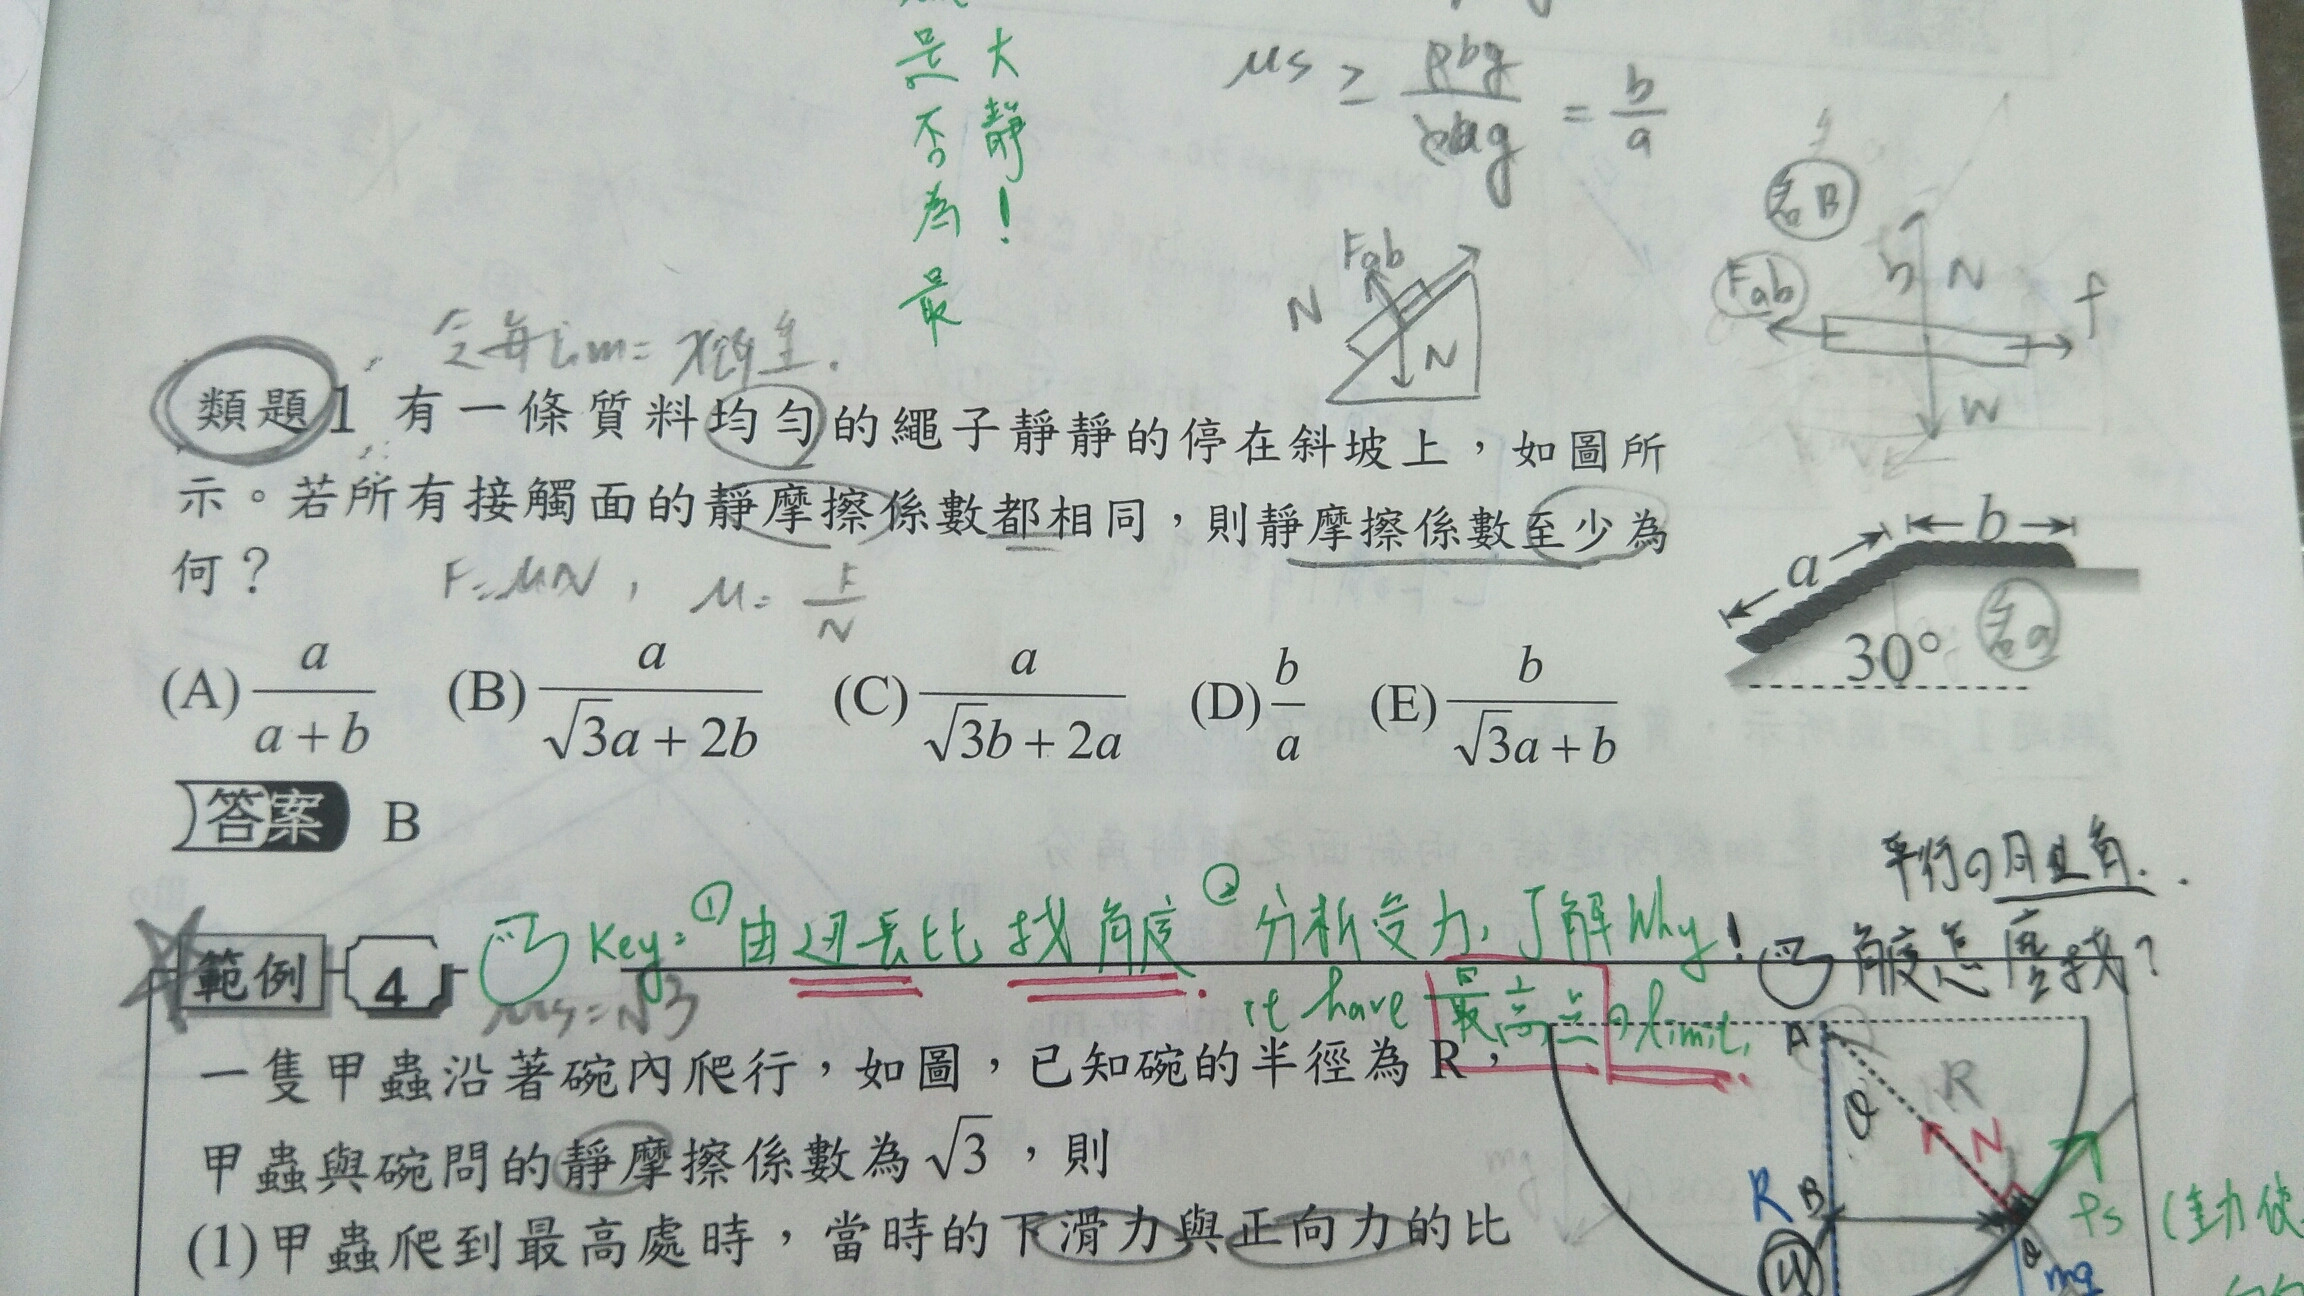 是 大
否 靜
為 !
最
μs ≥ ρbg/ρag = b/a
若B
Fab
N
N
Fab h N f
W
令每1cm= x
類題1 有一條質料均勻的繩子靜靜的停在斜坡上，如圖所
示。若所有接觸面的靜摩擦係數都相同，則靜摩擦係數至少為
何？
F=μN , μ= F/N
a b
30°
若a
(A) a/(a+b) (B) a/(√3a+2b) (C) a/(√3b+2a) (D) b/a (E) b/(√3a+b)
答案 B
平行の同位角.
範例 4 Key: ①由邊長比找角度 ②分析受力,了解Why!
角度怎麼找?
μs=√3
it have 最高点の limit.
一隻甲蟲沿著碗內爬行，如圖，已知碗的半徑為R，
甲蟲與碗間的靜摩擦係數為√3，則
(1)甲蟲爬到最高處時，當時的下滑力與正向力的比
A
R
θ
N
R B
fs
θ
mg